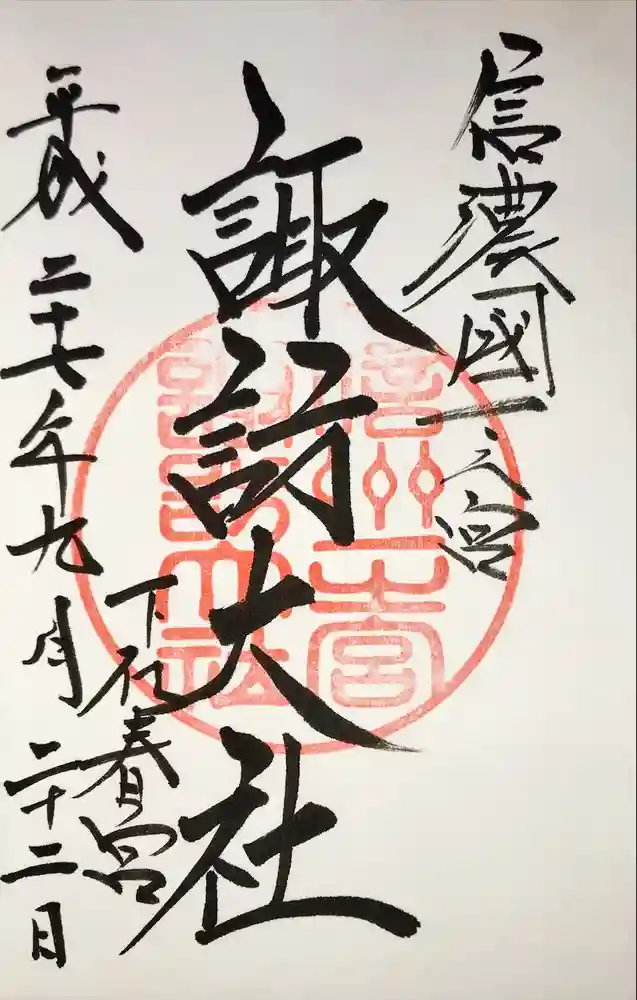 信濃國一之宮
諏訪大社
下社春宮
平成二十七年九月二十二日
信州一宮
諏訪大社